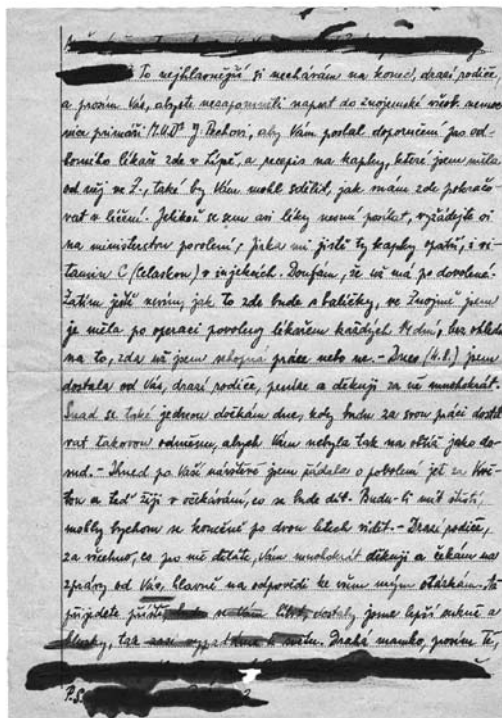 To nejhlavnější si nechávám na konec, drazí rodiče,
a prosím Vás, abyste nezapomněli napsat do znojemské všeob. nemoc-
nice primáři M.U.Dr J. Pechovi, aby Vám poslal doporučení pro od-
borného lékaře zde v Lípě, a recepis na kapky, které jsem měla
od něj ve Z., také by Vám mohl sdělit, jak mám zde pokračo-
vat v léčení. Jelikož se sem asi léky nesmí posílat, vyžádejte si
na ministerstvu povolení, Jirka mi jistě ty kapky opatří, i vi-
tamin C (Celaskon) v injekcích. Doufám, že už má po dovolené.
Zatím ještě nevím, jak to zde bude s balíčky, ve Znojmě jsem
je měla po operaci povoleny lékařem každých 14 dní, bez ohledu
na to, zda už jsem schopna práce nebo ne. – Dnes (4.8.) jsem
dostala od Vás, drazí rodiče, peníze a děkuji za ně mnohokrát.
Snad se také jednou dočkám dne, kdy budu za svou práci dostá-
vat takovou odměnu, abych Vám nebyla tak na obtíž jako do-
sud. – Ihned po Vaší návštěvě jsem žádala o povolení jet za Kvě-
tou a teď žiji v očekávání, co se bude dít. Budu-li mít štěstí,
mohly bychom se konečně po dvou letech vidět. – Drazí rodiče,
za všechno, co pro mě děláte, Vám mnohokrát děkuji a čekám na
zprávy od Vás, hlavně na odpovědi ke všem mým otázkám. Až
přijedete příště, se Vám líbit, dostaly jsme lepší sukně a
tak zasi Drahá mamko, prosím Tě,
P.S.